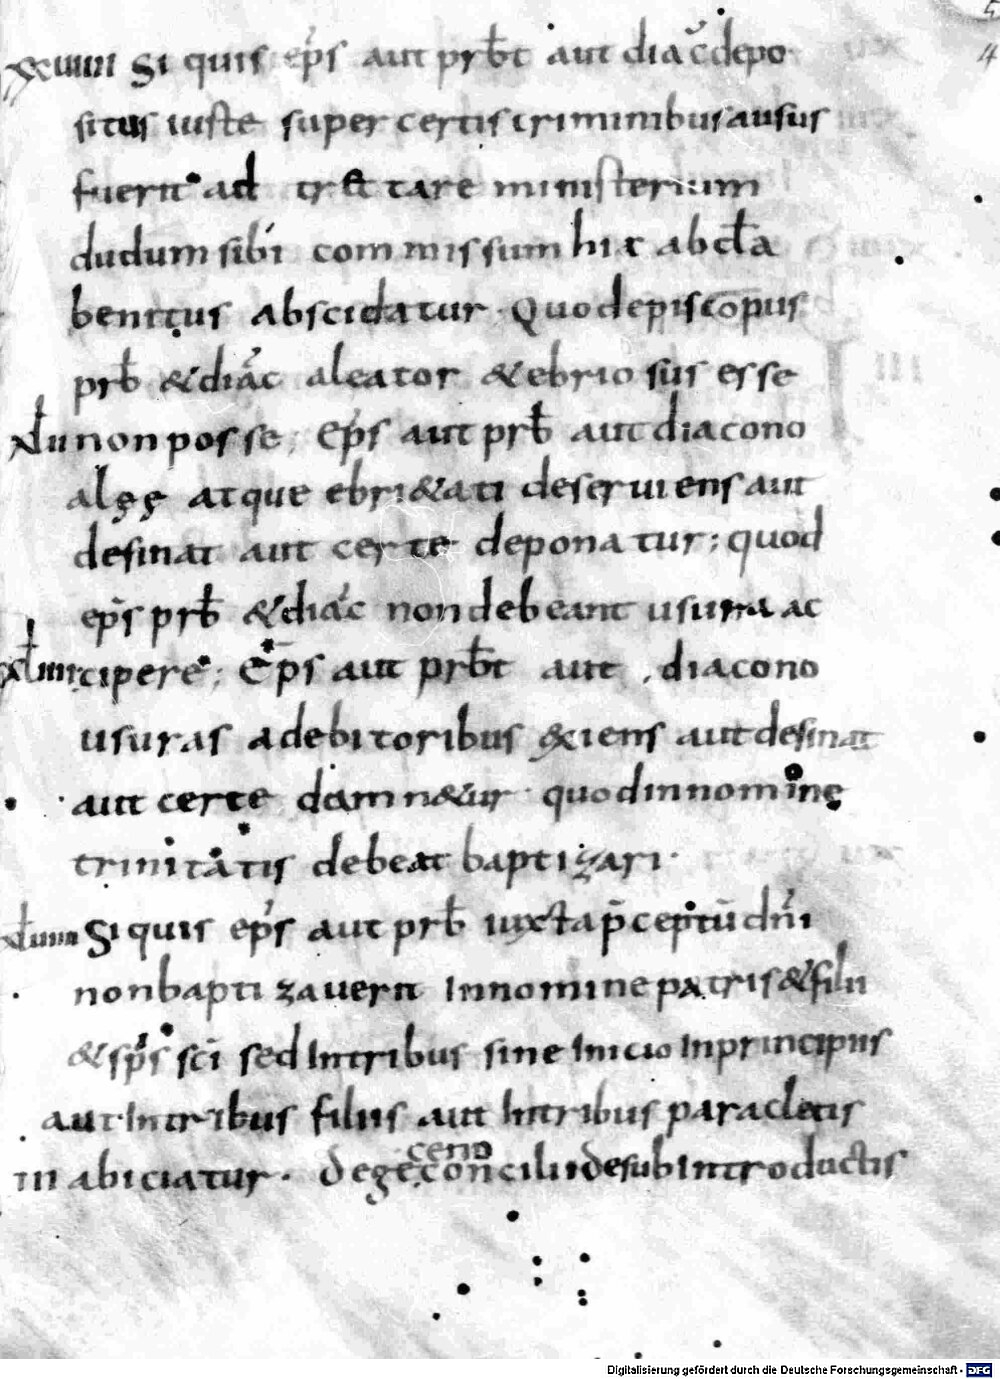 xxviiii Si quis ep̄s aut prb̄t aut diac̄ depo
situs iuste super certis criminibus ausus
fuerit ad tr&tare ministerium
dudum sibi commissum hic ab ecl̄a
benitus abscidatur. Quod episcopus
prb̄ & diac̄ aleator & ebriosus esse
xlii non posse; Ep̄s aut prb̄ aut diacono
aleę atque ebri&ati deserviens aut
desinat aut certe deponatur; quod
ep̄s prb̄ & diac̄ non debeant usura ac
xliiii cipere; Ep̄s aut prb̄t aut diacono
usuras a debitoribus exiens aut desinat
aut certe damn&ur. quod in nomine
trinitatis debeat baptizari.
xlviiii Si quis ep̄s aut prb̄ iuxta p̄ceptū dn̄i
non baptizaverit In nomine patris & filii
& sp̄s sc̄i sed In tribus sine Inicio In principiis
aut In tribus filiis aut In tribus paracletis
abiciatur. de geceno concilii de subIntroductis
Digitalisierung gefördert durch die Deutsche Forschungsgemeinschaft - DFG